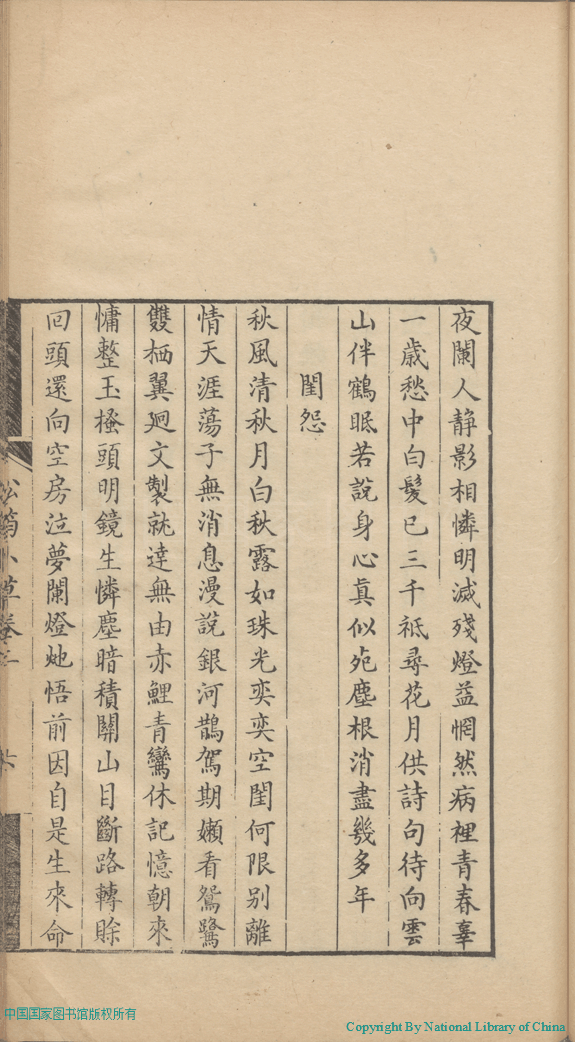 夜闌人靜影相憐明滅殘燈益惘然病裡青春辜
一歲愁中白髮已三千祗尋花月供詩句待向雲
山伴鶴眠若說身心真似死塵根消盡幾多年
閨怨
秋風清秋月白秋露如珠光奕奕空閨何限別離
情天涯蕩子無消息漫說銀河鵲駕期嬾看鴛鷺
雙栖翼廻文製就達無由赤鯉青鸞休記憶朝來
慵整玉搔頭明鏡生憐塵暗積關山目斷路轉賒
回頭還向空房泣夢闌燈灺悟前因自是生來命
松筠小草卷二
中国国家图书馆版权所有
Copyright By National Library of China